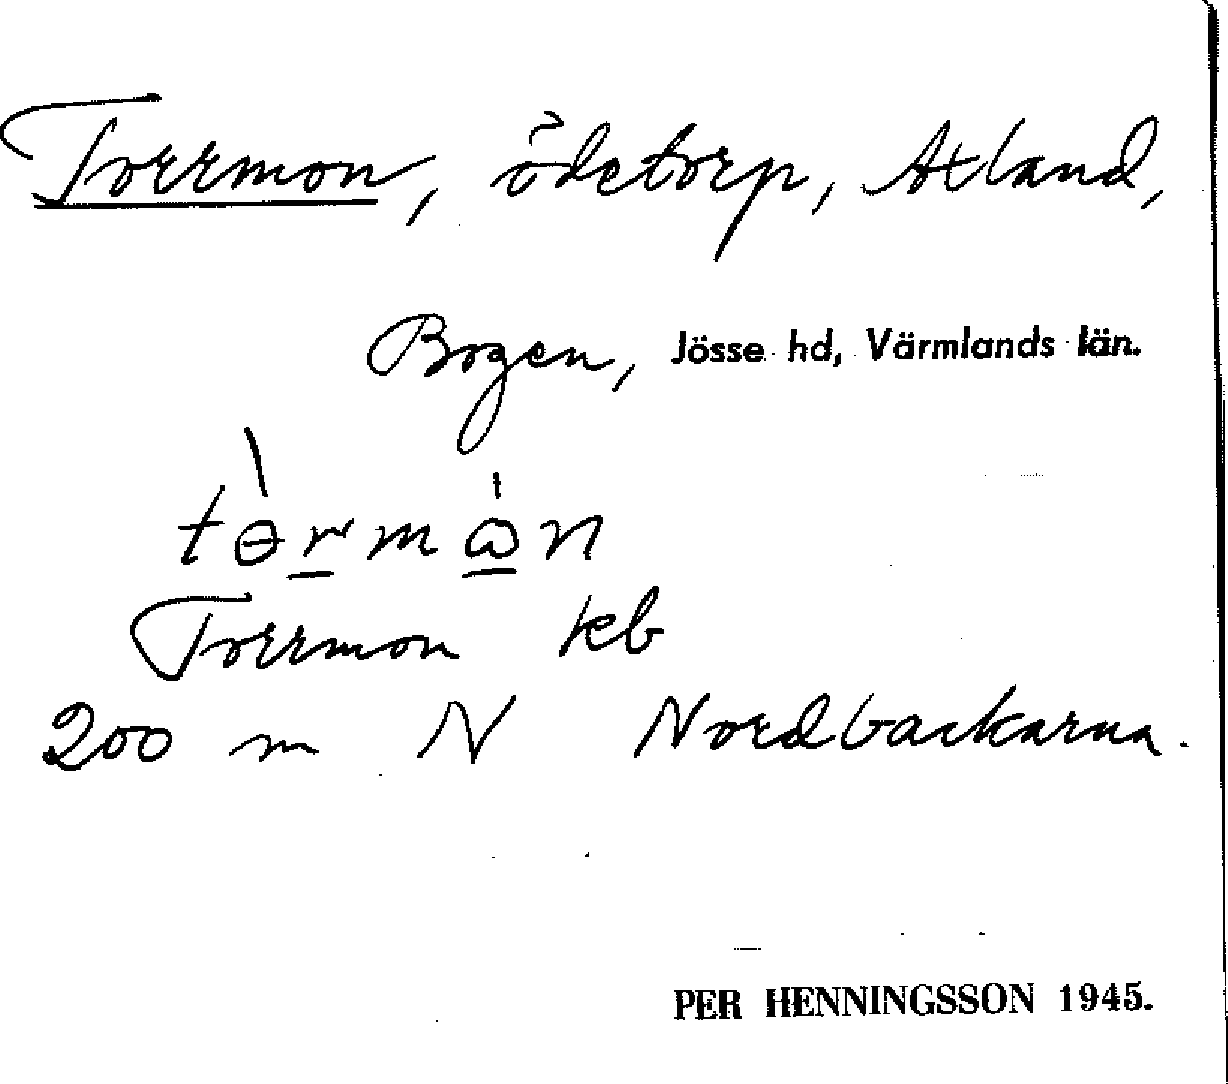 Torrmon, ödetorp, Axland,
Bogen, Jösse hd, Värmlands län.
tɵ̀rmὼn
Torrmon kb
200 m N Nordbackarna.
PER HENNINGSSON 1945.